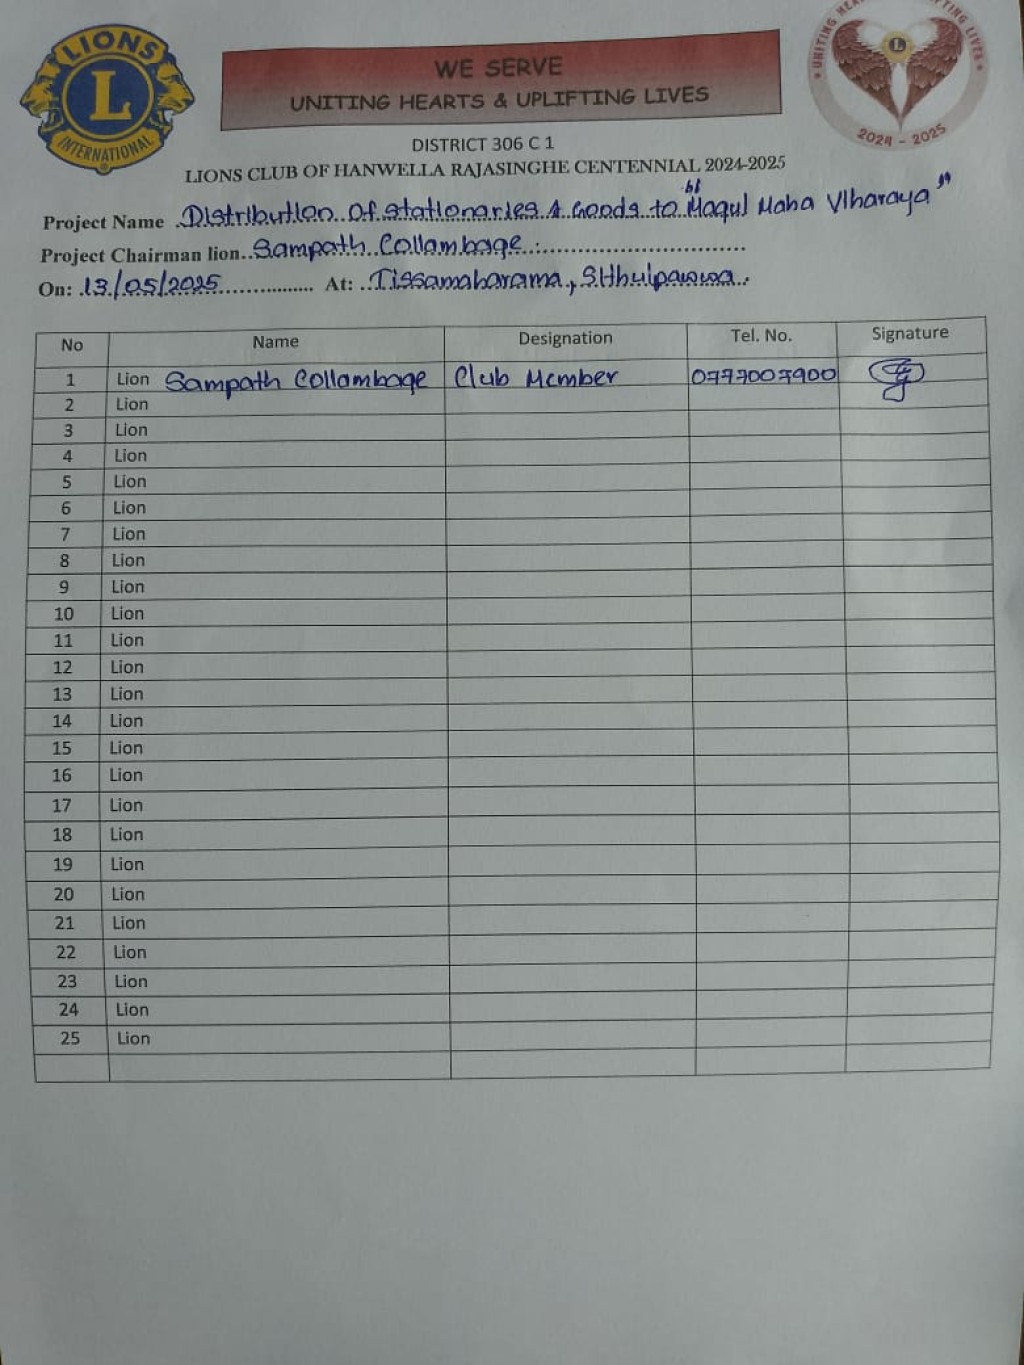 LIONS
L
INTERNATIONAL
WE SERVE
UNITING HEARTS & UPLIFTING LIVES
UNITING HEARTS & UPLIFTING LIVES
L
2024 - 2025
DISTRICT 306 C 1
LIONS CLUB OF HANWELLA RAJASINGHE CENTENNIAL 2024-2025
Project Name Distribution Of stationaries & Goods to "Magul Maha Viharaya"
Project Chairman lion..Sampath Collambage
On: 13/05/2025 At: Tissamaharama, Sithulpawwa
No Name Designation Tel. No. Signature
1 Lion Sampath Collambage Club Member 0777007900
2 Lion
3 Lion
4 Lion
5 Lion
6 Lion
7 Lion
8 Lion
9 Lion
10 Lion
11 Lion
12 Lion
13 Lion
14 Lion
15 Lion
16 Lion
17 Lion
18 Lion
19 Lion
20 Lion
21 Lion
22 Lion
23 Lion
24 Lion
25 Lion